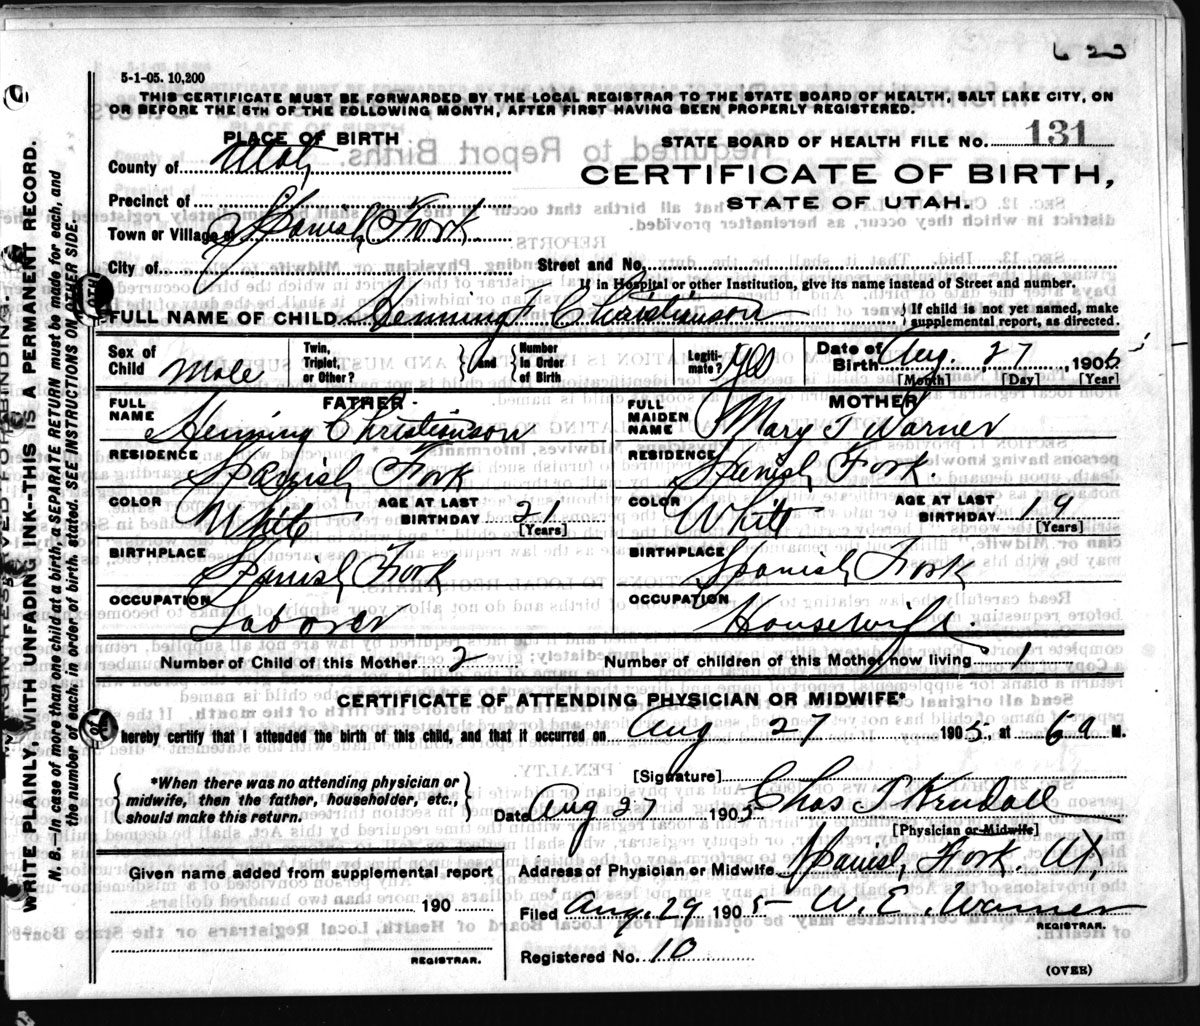 623
5-1-05. 10,200
THIS CERTIFICATE MUST BE FORWARDED BY THE LOCAL REGISTRAR TO THE STATE BOARD OF HEALTH, SALT LAKE CITY, ON
OR BEFORE THE 5TH OF THE FOLLOWING MONTH, AFTER FIRST HAVING BEEN PROPERLY REGISTERED.
PLACE OF BIRTH
STATE BOARD OF HEALTH FILE NO. 131
County of Utah
CERTIFICATE OF BIRTH,
STATE OF UTAH.
Precinct of
Town or Village of Spanish Fork
City of
Street and No.
If in Hospital or other Institution, give its name instead of Street and number.
FULL NAME OF CHILD Henning F Christianson
{ If child is not yet named, make
supplemental report, as directed.
Sex of Child Male
Twin, Triplet, or Other? } and { Number In Order of Birth
Legiti- mate? Yes
Date of Birth Aug. 27 1905
[Month] [Day] [Year]
FATHER
FULL NAME Henning Christianson
MOTHER
FULL MAIDEN NAME Mary J Warner
RESIDENCE Spanish Fork
RESIDENCE Spanish Fork.
COLOR White
AGE AT LAST BIRTHDAY 21 [Years]
COLOR White
AGE AT LAST BIRTHDAY 19 [Years]
BIRTHPLACE Spanish Fork
BIRTHPLACE Spanish Fork
OCCUPATION Laborer
OCCUPATION Housewife
Number of Child of this Mother 2
Number of children of this Mother now living 1
CERTIFICATE OF ATTENDING PHYSICIAN OR MIDWIFE*
hereby certify that I attended the birth of this child, and that it occurred on Aug 27 1905, at 6 a M.
{ *When there was no attending physician or
midwife, then the father, householder, etc.,
should make this return. }
[Signature]
Date Aug 27 1905 Chas J Kendall
[Physician or Midwife]
Given name added from supplemental report
190
REGISTRAR.
Address of Physician or Midwife Spanish Fork Ut,
Filed Aug. 29 1905 W. E. Warner
REGISTRAR.
Registered No. 10
(OVER)
MARGIN RESERVED FOR BINDING.
WRITE PLAINLY, WITH UNFADING INK--THIS IS A PERMANENT RECORD.
N. B.--In case of more than one child at a birth, a SEPARATE RETURN must be made for each, and
the number of each, in order of birth, stated. SEE INSTRUCTIONS ON OTHER SIDE.